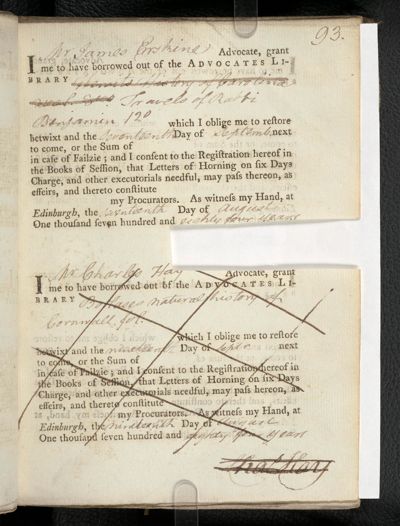 93.
Mr James Erskine Advocate, grant
I me to have borrowed out of the ADVOCATES LI-
BRARY History of Carolina
Travels of Rabbi
Benjamin 12º which I oblige me to reſtore
betwixt and the Seventeenth Day of Septemb. next
to come, or the Sum of
in caſe of Failzie ; and I conſent to the Regiſtration hereof in
the Books of Seſſion, that Letters of Horning on ſix Days
Charge, and other executorials needful, may paſs thereon, as
effeirs, and thereto conſtitute
my Procurators. As witneſs my Hand, at
Edinburgh, the Seventeenth Day of August
One thouſand ſeven hundred and eighty four years
Mr Charles Hay Advocate, grant
I me to have borrowed out of the ADVOCATES LI-
BRARY natural history of
Cornwall fol.
which I oblige me to reſtore
betwixt and the nineteenth Day of Septr. next
to come, or the Sum of
in caſe of Failzie ; and I conſent to the Regiſtration hereof in
the Books of Seſſion, that Letters of Horning on ſix Days
Charge, and other executorials needful, may paſs hereon, as
effeirs, and thereto conſtitute
my Procurators. As witneſs my Hand, at
Edinburgh, the nineteenth Day of August
One thouſand ſeven hundred and eighty four years
Chas. Hay